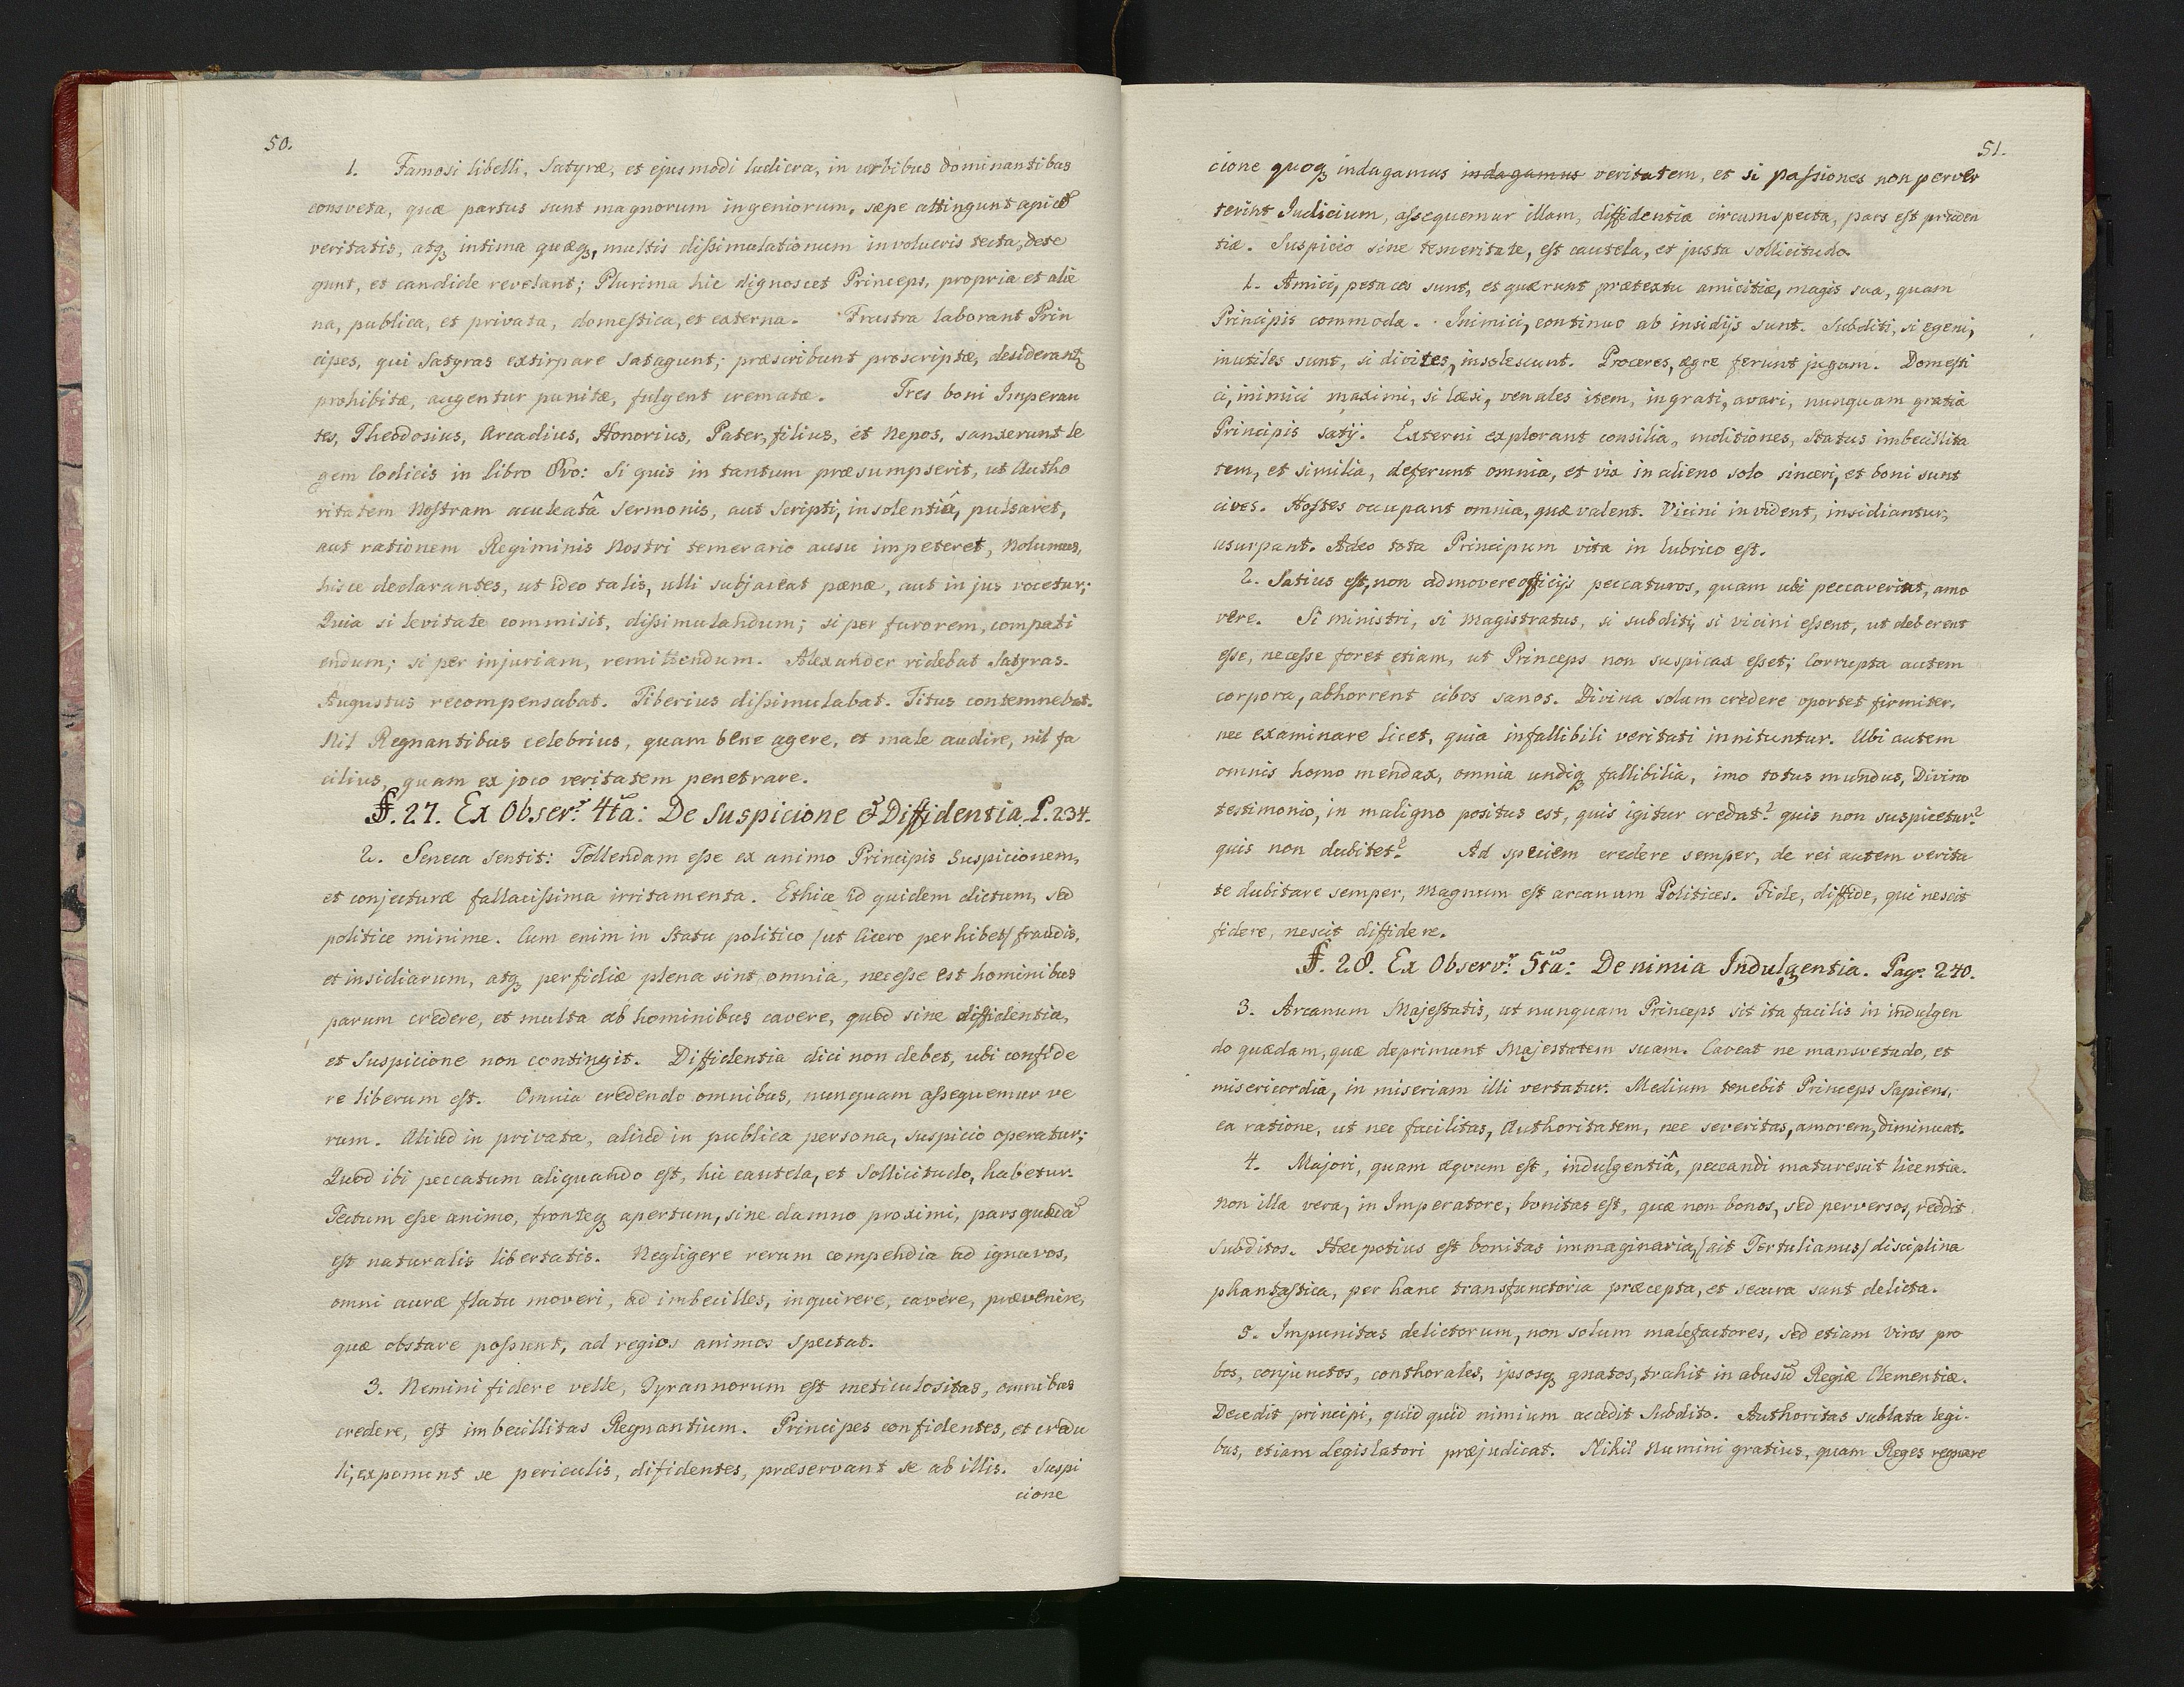 50.
1. Famosi libelli, Satyræ, et ejusmodi ludicra, in urbibus dominantibus
consveta, quæ partus sunt magnorum ingeniorum, sæpe attingunt apicē
veritatis, atqȝ intima quæqȝ, multis dissimulationum involucris tecta, dete
gunt, et candide revelant; Plurima hic dignoscet Princeps, propria et alie
na, publica, et privata, domestica, et externa. Frustra laborant Prin
cipes, qui Satyras extirpare satagunt; præscribunt proscriptæ, desiderantȝ
prohibitæ, augentur punitæ, fulgent crematæ. Tres boni Imperan
tes, Theodosius, Arcadius, Honorius, Pater, filius, et Nepos, sanxerunt le
gem Codicis in libro 8vo: Si quis in tantum præsumpserit, ut Autho
ritatem Nostram aculeatâ Sermonis, aut Scripti, insolentiâ, pulsaret,
aut rationem Regiminis Nostri temerario ausu impeteret, Nolumus,
hisce declarantes, ut ideo talis, ulli subjaceat pænæ, aut in jus vocetur;
Quia si levitate commisit, dissimulandum; si per furorem, compati
endum; si per injuriam, remittendum. Alexander ridebat Satyras.
Augustus recompensabat. Tiberius dissimulabat. Titus contemnebat.
Nil Regnantibus celebrius, quam bene agere, et male audire, nil fa
cilius, quam ex joco veritatem penetrare.
§. 27. Ex Observ: 4ta: De Suspicione & Diffidentia. P. 234.
2. Seneca sentit: Tollendam esse ex animo Principis Suspicionem,
et conjecturæ fallacissima irritamenta. Ethice id quidem dictum, sed
politice minime. Cum enim in Statu politico /ut Cicero perhibet/ fraudis,
et insidiarum, atqȝ perfidiæ plena sint omnia, necesse est hominibus
parum credere, et multa ab hominibus cavere, quod sine diffidentia,
et Suspicione non contingit. Diffidentia dici non debet, ubi confide
re liberum est. Omnia credendo omnibus, nunquam assequemur ve
rum. Aliud in privata, aliud in publica persona, suspicio operatur;
Quod ibi peccatum aliquando est, hic cautela, et Sollicitudo, habetur.
Tectum esse animo, fronteqȝ apertum, sine damno proximi, pars quædā
est naturalis libertatis. Negligere rerum compendia ad ignavos,
omni auræ flatu moveri, ad imbecilles, inquirere, cavere, prævenire,
quæ obstare possunt, ad regios animos spectat.
3. Nemini fidere velle, Tyrannorum est meticulositas, omnibus
credere, est imbecillitas Regnantium. Principes confidentes, et credu
li, exponunt se periculis, difidentes, præservant se ab illis. Suspi
cione
51.
cione quoqȝ indagamus indagamus veritatem, et si passiones non perver
terint Judicium, assequemur illam, diffidentia circumspecta, pars est pruden
tiæ. Suspicio sine temeritate, est cautela, et justa sollicitudo.
1. Amici, petaces sunt, et quærunt prætextu amicitiæ, magis sua, quam
Principis commoda. Inimici, continuo ab insidijs sunt. Subditi, si egeni,
inutiles sunt, si divites, insolescunt. Proceres, ægre ferunt jugum. Domesti
ci, inimici maximi, si læsi, venales item, ingrati, avari, nunquam gratiæ
Principis satij. Externi explorant consilia, molitiones, Status imbecillita
tem, et similia, deferunt omnia, et vix in alieno solo sinceri, et boni sunt
cives. Hostes occupant omnia, quæ valent. Vicini invident, insidiantur,
usurpant. Adeo tota Principum vita in lubrico est.
2. Satius est, non admovere officijs peccaturos, quam ubi peccaverint, amo
vere. Si ministri, si Magistratus, si subditi, si vicini essent, ut deberent
esse, necesse foret etiam, ut Princeps non suspicax esset; Corrupta autem
corpora, abhorrent cibos sanos. Divina solum credere oportet firmiter,
nec examinare licet, quia infallibili veritati innituntur. Ubi autem
omnis homo mendax, omnia undiqȝ fallibilia, imo totus mundus, Divino
testimonio, in maligno positus est, quis igitur credat? quis non suspicetur?
quis non dubitet? Ad speciem credere semper, de rei autem verita
te dubitare semper, Magnum est arcanum Politices. Fide, diffide, qui nescit
fidere, nescit diffidere.
§. 28. Ex Observ: 5ta: De nimia Indulgentia. Pag: 240.
3. Arcanum Majestatis, ut nunquam Princeps sit ita facilis in indulgen
do quædam, quæ deprimunt Majestatem suam. Caveat ne mansvetudo, et
misericordia, in miseriam illi vertatur. Medium tenebit Princeps Sapiens,
ea ratione, ut nec facilitas, Authoritatem, nec severitas, amorem, diminuat.
4. Majori, quam æqvum est, indulgentiâ, peccandi maturescit licentia.
Non illa vera, in Imperatore, bonitas est, quæ non bonos, sed perversos, reddit
Subditos. Hæc potius est bonitas immaginaria, /ait Tertulianus/ disciplina
phantastica, per hanc transfunctoria præcepta, et secura sunt delicta.
5. Impunitas delictorum, non solum malefactores, sed etiam viros pro
bos, conjunctos, conthorales, ipsosqȝ gnatos, trahit in abusū Regiæ Clementiæ.
Decedit principi, quid quid nimium accedit Subdito. Authoritas sublata legi-
bus, etiam Legislatori præjudicat. Nihil Numini gratius, quam Reges regnare